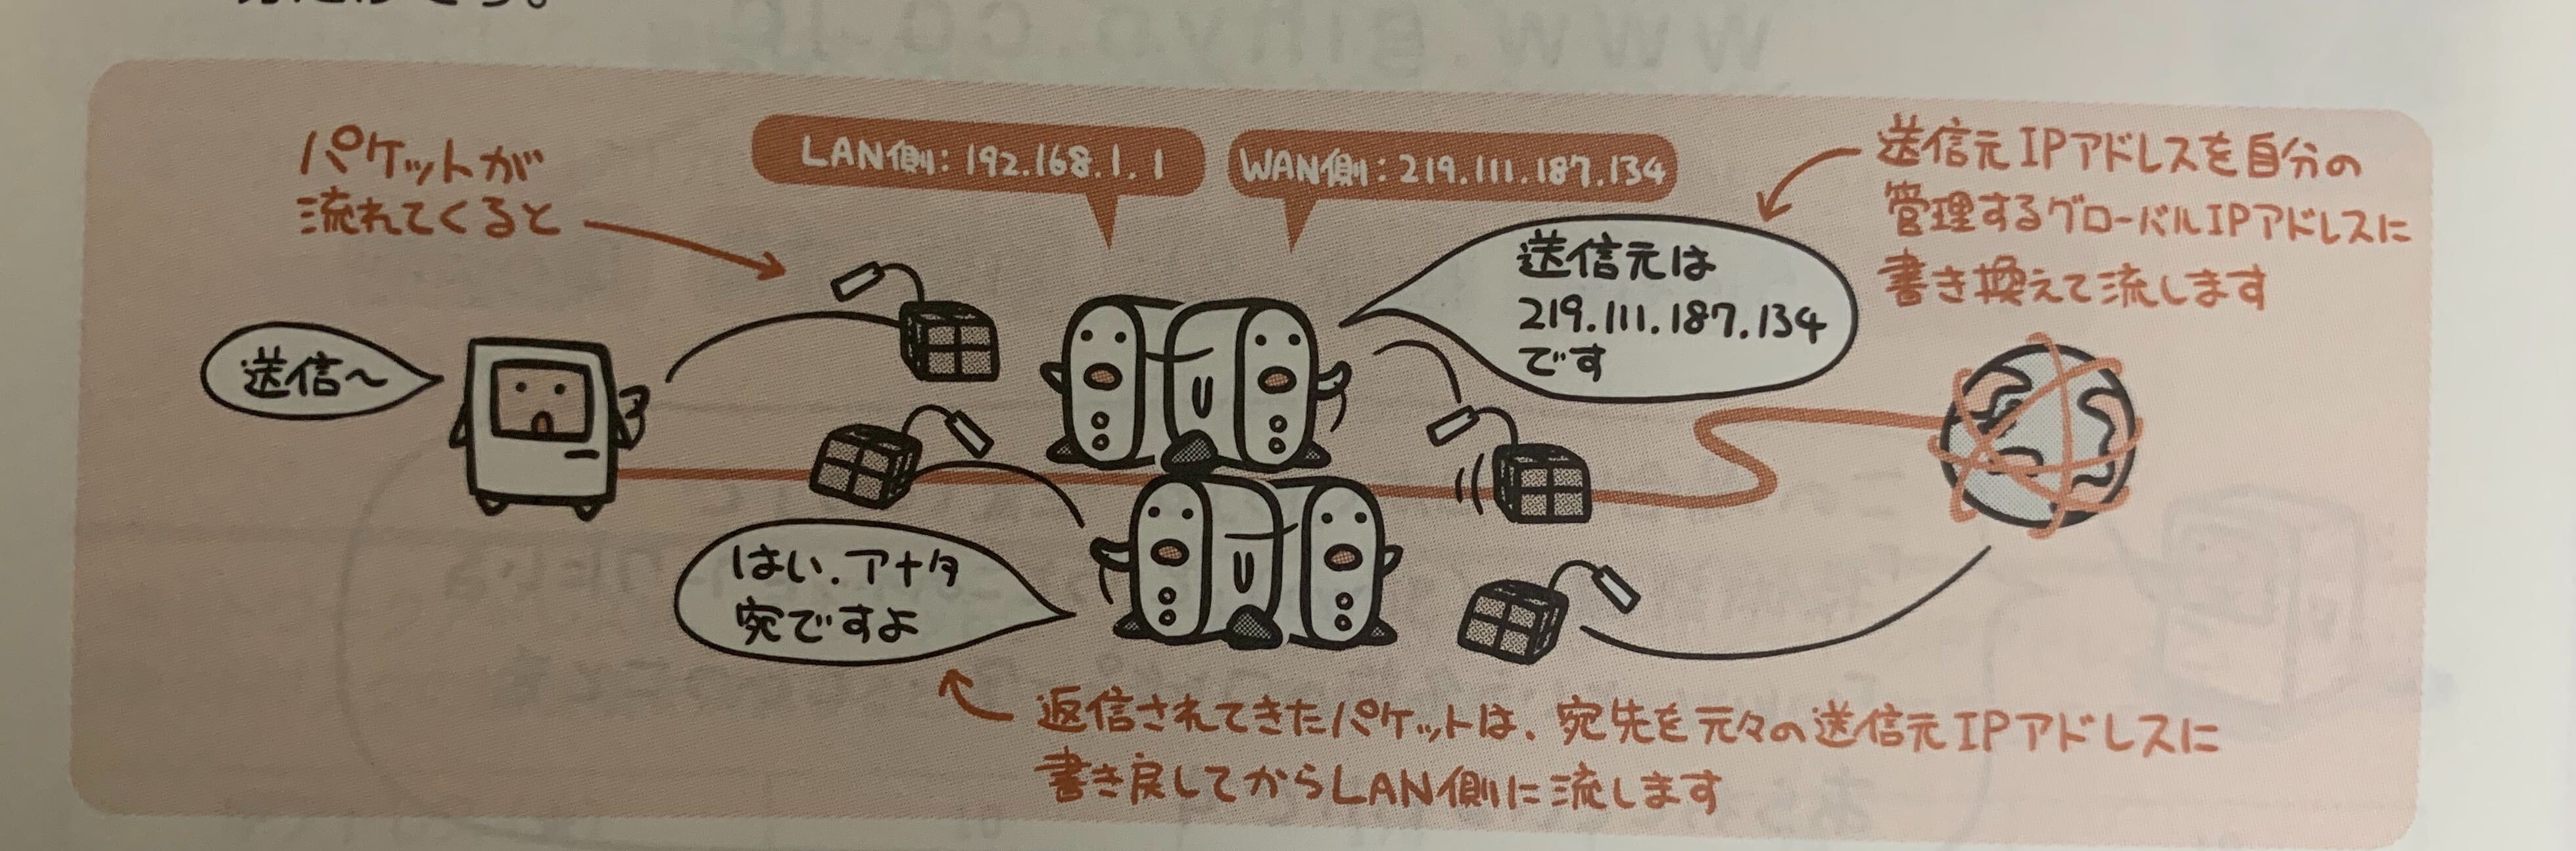 パケットが
流れてくると
LAN側：192.168.1.1
WAN側：219.111.187.134
送信元IPアドレスを自分の
管理するグローバルIPアドレスに
書き換えて流します
送信元は
219.111.187.134
です
送信〜
はい、アナタ
宛ですよ
返信されてきたパケットは、宛先を元々の送信元IPアドレスに
書き戻してからLAN側に流します